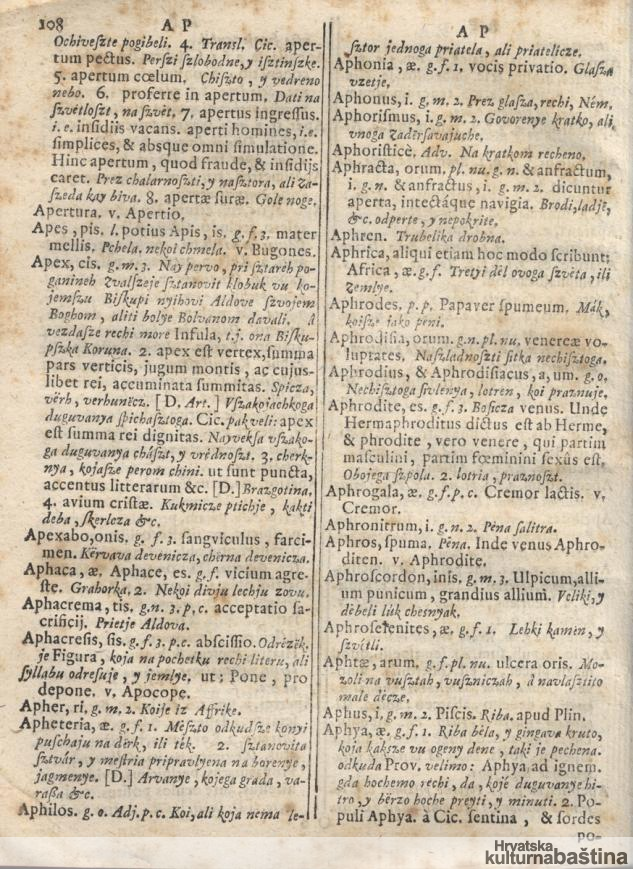 108 A P
Ochiveſzte pogibeli. 4. Transl. Cic. aper-
tum pectus. Perſzi ſzlobodne, y iſztinſzke.
5. apertum cœlum. Chiſzto, y vedreno
nebo. 6. proferre in apertum. Dati na
ſzvètloſzt, na ſzvèt. 7. apertus ingreſſus.
i. e. inſidiis vacans. aperti homines, i.e.
ſimplices, & absque omni ſimulatione.
Hinc apertum, quod fraude, & inſidijs
caret. Prez chalarnoſzti, y naſztora, ali za-
ſzeda kay biva. 8. apertæ ſuræ. Gole noge.
Apertura. v. Apertio.
Apes, pis. l. potius Apis, is. g. f. 3. mater
mellis. Pchela. nekoi chmela. v. Bugones.
Apex, cis. g. m. 3. Nay pervo, pri ſztareh po-
ganineh zvalſzeje ſztanovit klobuk vu ko-
jemſzu Biſkupi nyihovi Aldove ſzvojem
Boghom, aliti bolye Bolvanom davali. â
vezdaſze rechi more Infula, t.j. ona Biſku-
pſzka Koruna. 2. apex eſt vertex, ſumma
pars verticis, jugum montis, ac cujus-
libet rei, accuminata ſummitas. Spicza,
vèrh, verhunècz. [ D. Art. ] Vſzakojachkoga
duguvanya ſpichaſztoga. Cic. pak veli: apex
eſt ſumma rei dignitas. Najvekſa vſzako-
ga duguvanya cháſzt, y vrédnoſzt. 3. cherk-
nya, kojaſze perom chini. ut ſunt puncta,
accentus litterarum &c. [D.] Brazgotina.
4. avium criſtæ. Kukmicze ptichje, kakti
deba, ſkerlcza &c.
Apexabo, onis. g. f. 3. ſangviculus, farci-
men. Kèrvava devenicza, chèrna devenicza.
Aphaca, æ. Aphace, es. g. f. vicium agre-
ſte. Grahorka. 2. Nekoi divju lechju zovu.
Aphacrema, tis. g. n. 3. p. c. acceptatio ſa-
crificij. Prietje Aldova.
Aphæreſis, ſis. g. f. 3. p. c. abſciſſio. Odrèzèk.
je Figura, koja na pochetku rechi literu, ali
ſyllabu odreſuje, y jemlye. ut; Pone, pro
depone. v. Apocope.
Apher, ri, g. m. 2. Koije iz Affrike.
Apheteria, æ. g. f. 1. Mèſzto odkudſze konyi
puſchaju na dirk, ili tèk. 2. ſztanovita
ſztvár, y meſtria pripravlyena na borenye,
jagmenye. [D.] Arvanye, kojega grada, va-
raſſa &c.
Aphilos. g. o. Adj. p. c. Koi, ali koja nema le-
A P
ſztor jednoga priatela, ali priatelicze.
Aphonia, æ. g. f. 1. vocis privatio. Glaſza
vzetje.
Aphonus, i. g. m. 2. Prez glaſza, rechi, Ném.
Aphoriſmus, i. g. m. 2. Govorenye kratko, ali
vnoga zadèrſavajuche.
Aphoriſticè. Adv. Na kratkom recheno.
Aphracta, orum. pl. nu. g. n. & anfractum,
i. g. n. & anfractus, i. g. m. 2. dicuntur
aperta, intectáque navigia. Brodi, ladje,
&c. odperte, y nepokrite.
Aphren. Trubelika drobna.
Aphrica, aliqui etiam hoc modo ſcribunt;
Africa, æ. g. f. Tretyi dèl ovoga ſzvèta, ili
zemlye.
Aphrodes. p. p. Papaver ſpumeum. Mák,
koiſze jako pèni.
Aphrodiſia, orum. g. n. pl. nu. venereæ vo-
luptates. Naſzladnoſzti ſitka nechiſztoga.
Aphrodius, & Aphrodiſiacus, a, um. g. o.
Nechiſztoga ſivlènya, lotren, koi praznuje.
Aphrodite, es. g. f. 3. Boſicza venus. Unde
Hermaphroditus dictus eſt ab Herme,
& phrodite, vero venere, qui partim
maſculini, partim fœminini ſexûs eſt,
Obojega ſzpola. 2. lotria, praznoſzt.
Aphrogala, æ. g. f. p. c. Cremor lactis. v.
Cremor.
Aphronitrum, i. g. n. 2. Pèna ſalitra.
Aphros, ſpuma. Pèna. Inde venus Aphro-
diten. v. Aphrodite.
Aphroſcordon, inis. g. m. 3. Ulpicum, alli-
um punicum, grandius allium. Veliki, y
dèbeli lúk cheſnyak.
Aphroſelenites, æ. g. f. 1. Lehki kamèn, y
ſzvètli.
Aphtæ, arum. g. f. pl. nu. ulcera oris. Mo-
zoli na vuſztah, vuſzniczah, â navlaſztito
male dècze.
Aphus, i, g. m. 2. Piſcis. Riba. apud Plin.
Aphya, æ. g. f. 1. Riba bèla, y gingava kruto,
koja kakſze vu ogeny dene, taki je pechena.
odkuda Prov. velimo: Aphya ad ignem.
gda hochemo rechi, da, koje duguvanye hi-
tro, y bèrzo hoche preyti, y minuti. 2. Po-
puli Aphya. à Cic. ſentina, & ſordes
po-
Hrvatska
kulturnabaština